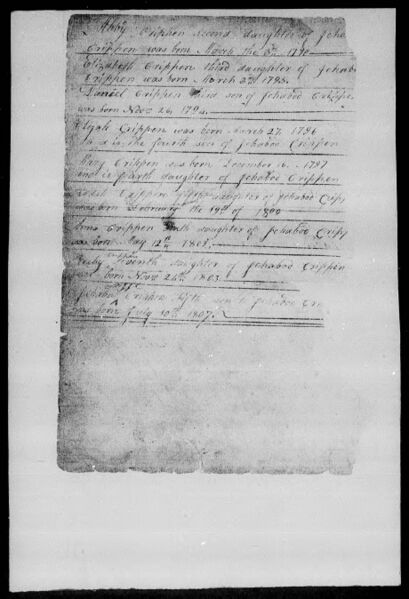 Abby Crippen Second daughter of Jcha
Crippen was born March the 3rd
Elizabeth Crippen third daughter of Jchab
Crippen was born March
Daniel Crippen third son of Jchaboo Crippe
was born Novr 26 1794
Elijah Crippen was born March 27 1796
is the fourth son of Jchaboo Crippen
Crippen was born December 16 1797
and is fourth daughter of Jchaboo Crippen
Crippen fifth daughter of Jchaboo Crip
was born February the 19th of 1800
Crippen Sixth daughter of Jchaboo Crip
was born May 12th 1801
Ruby Crippen Seventh daughter of Jchaboo Crippen
was born Novr 24th 1803
Crippen fifth son of Jchaboo Cri
was born July 10th 1807